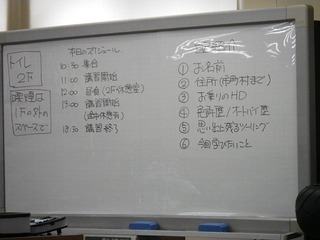 トイレ
2F
喫煙は
1Fの外の
スペースで
本日のスケジュール
10:30 集合
11:00 講習開始
12:00 昼食(2F休憩室)
13:00 講習開始
(途中休憩有)
18:30 講習終了
自己紹介
① お名前
② 住所(市町村まで)
③ お乗りのHD
④ 免許歴/オートバイ歴
⑤ 思い出に残るツーリング
⑥ 今回学びたいこと